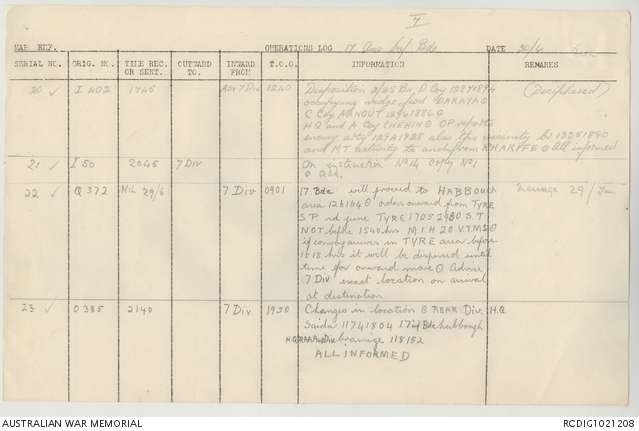 V
MAP REF. OPERATIONS LOG 17 Aus Inf Bde DATE 30/6
SERIAL NO. ORIG. NO. TIME REC. OR SENT. OUTWARD TO. INWARD FROM T.O.O. INFORMATION REMARKS
20 ✓ I 402 1745 Adv 7 Div 1240 Disposition 2/25 Bn, D Coy (Deciphered)
occupying ridge ford DARAYA
C Coy AANOUT
HQ and A Coy CHEHIM O OP reports
enemy acty 129A1928 also vicinity
and MT activity to and from KHARFFE O All informed
21 ✓ I 50 2045 7 Div On instruction No 14 Copy No 1
O Ack.
22 ✓ Q 372 Nil 29/6 7 Div 0901 17 Bde will proceed to HABBOUCH message 29/June
area 126164 O orders onward from TYRE
S.P. rd junc TYRE S.T.
NOT before 1540 hrs M.I.H 20 V.T.M. O
if convoy arrives in TYRE area before
1518 hrs it will be dispersed until
time for onward move O Advise
7 Div exact location on arrival
at destination
23 ✓ O 385 2140 7 Div 1950 Changes in location O REAR Div. H.Q
Saida 11741804 17 inf Bde habbough
118152
ALL INFORMED
AUSTRALIAN WAR MEMORIAL RCDIG1021208